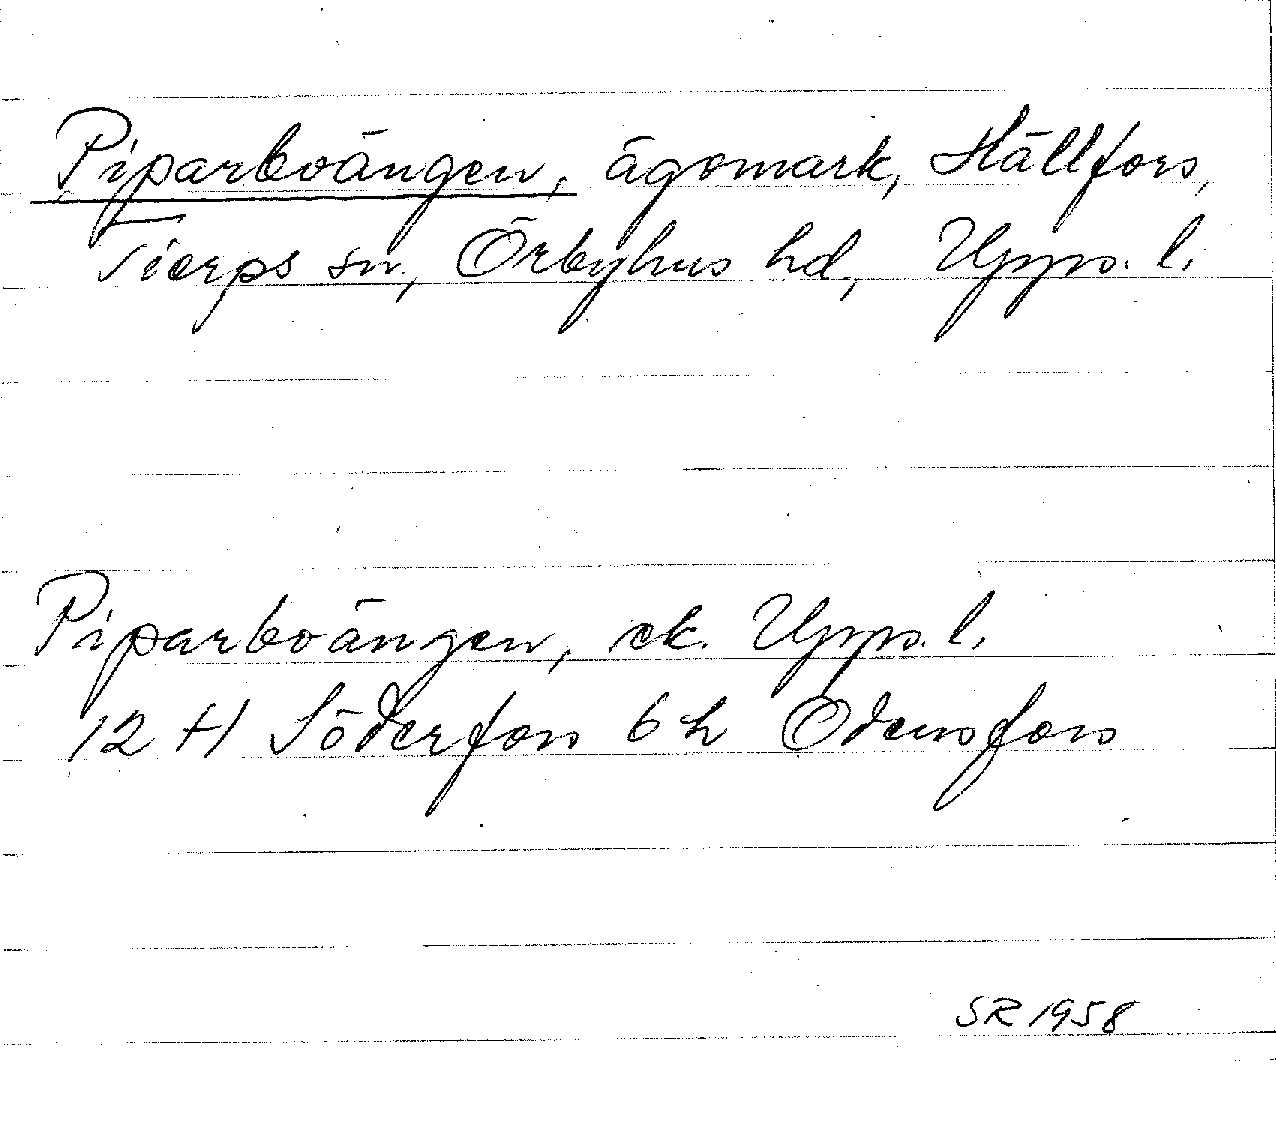 Piparboängen, ägomark, Hällfors,
Tierps sn, Örbyhus hd, Upps. l.
Piparboängen, ek. Upps. l.
12 H Söderfors 6 h Odensfors
SR 1958